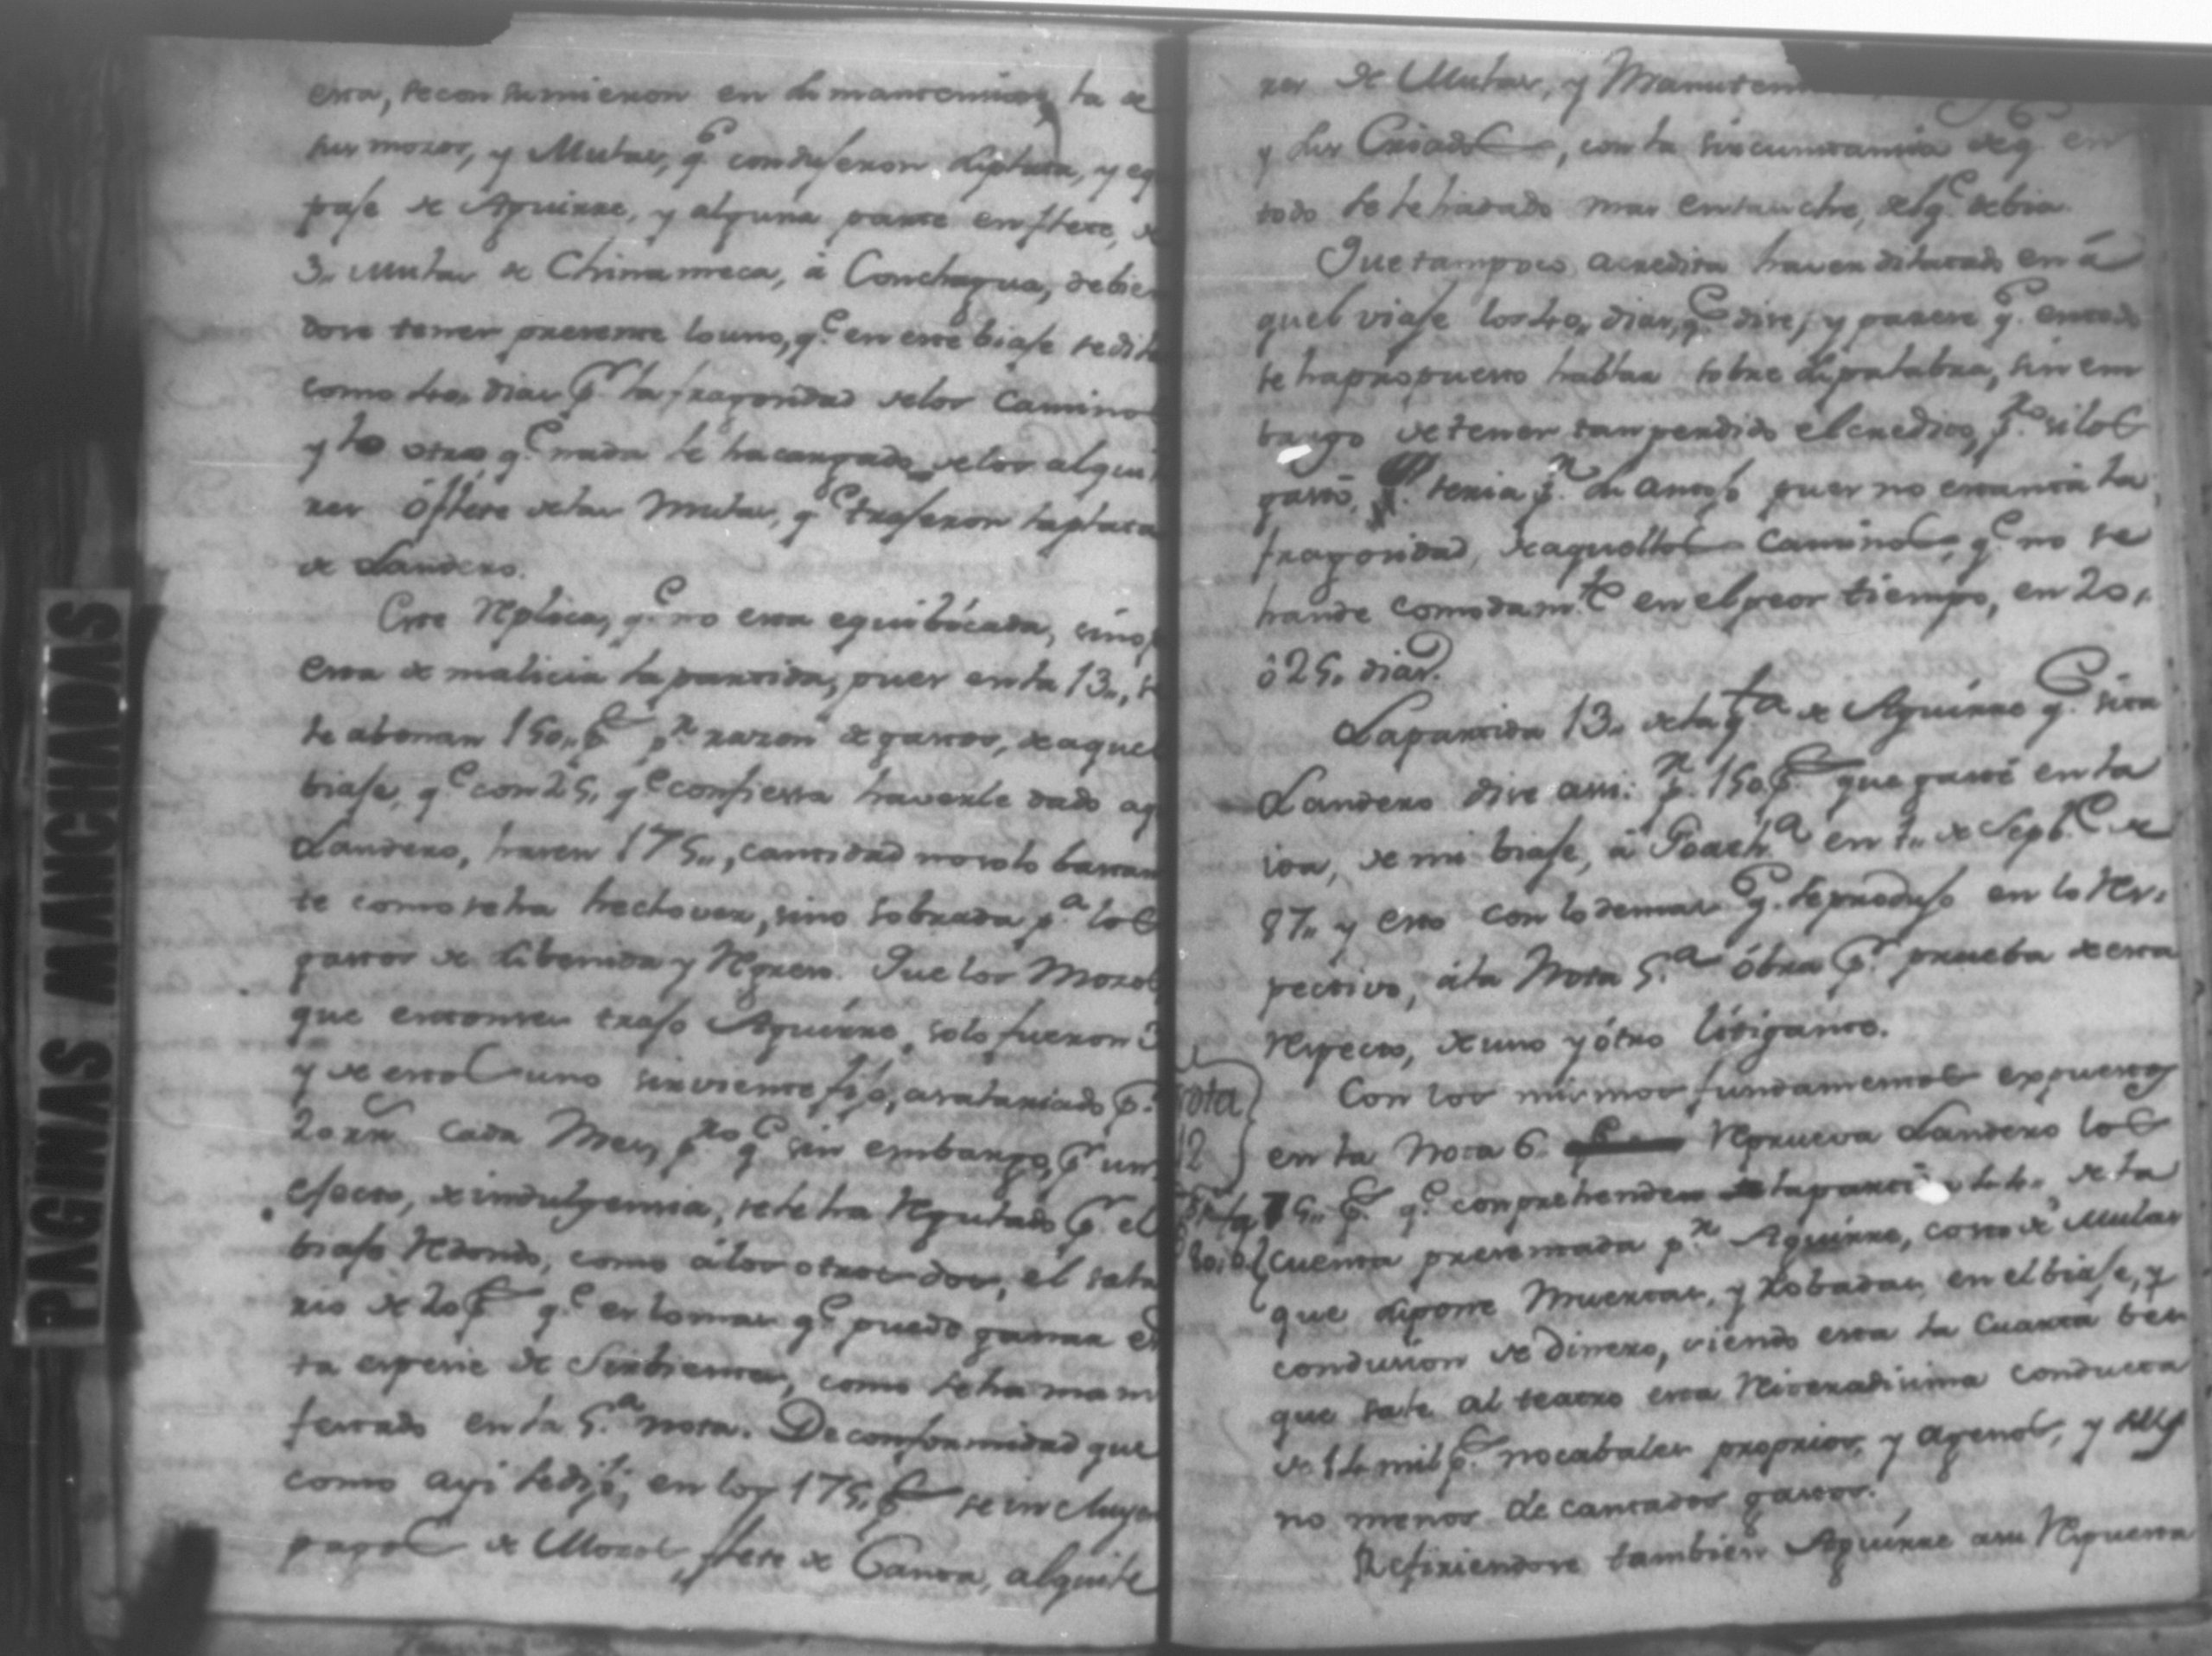 esta, se consumieron en la mantencion, ta de
sus mozos, y Mulas, q.e condujeron la plata, y eq
paje de Aguirre, y alguna parte en flete, de
3,, Mulas de Chinameca, à Conchagua, debien
dose tener presente lo uno, q.e en este biaje se dila
como 40,, dias p.r la fragosidad de los Caminos
y lo otro, q.e nada le ha cargado, de los alqui
res ó flete de las Mulas, q.e trajeron la plata
de Landero.
Este Replica, q.e no esta equibócada, sino
esta de malicia la partida, pues en la 13,, se
le abonan 150,, p.s p.r razon de gastos, de aquel
biaje, q.e con 25,, q.e confiesa haverle dado aq
Landero, hacen 175,, cantidad no solo bastan
te como se ha hecho ver, sino sobrada p.a los
gastos de de ida y Regreso. Que los Mozos
que entonces trajo Aguirre, solo fueron 3
y de estos uno sirviente fijo, asalariado p.r
20 rr.s cada Mes, p.ro q.e sin embargo, p.r un
efecto, de indulgencia, se le ha Regulado p.r el
biaje Redondo, como á los otros dos, el sala
rio de 20 p.s q.e es lo mas q.e puede ganar es
ta especie de Sirbientes, como se ha mani
festado en la 5.a nota. De conformidad que
como ayi se dijo, en los 175,, p.s se incluyen
pagos de Mozos, flete de Canoa, alquile
res de Mulas, y Manuten
y sus Criados, con la sircunstancia de q.e en
todo se le ha dado mas ensanche, del q.e debia.
Que tampoco acredita haver dilatado en á
quel viaje los 40,, dias, q.e dice, y parece q.e en todo
se ha propuesto hablar sobre su palabra, sin em
bargo de tener tan perdido el credito, p.ro si los
gastó, seria p.r su antojo pues no es tanta la
fragosidad, de aquellos Caminos, q.e no se
hande comodam.te en el peor tiempo, en 20,,
ò 25,, dias.
La partida 13,, de la q.ta de Aguirre q.e sita
Landero dice assi: p.r 150 p.s que gasté en la
ida, de mi biaje, à Goath.a en 1,, de Sepb.e de
87,, y esto con lo demas q.e se produjo en lo Res,
pectivo, á la Nota 5.a óbra p.r prueba de esta
Respecto, de uno y ótro litigante.
Nota
12
Con los mismos fundamentos expuestos
en la Nota 6. Reprueva Landero los
75,, p.s q.e conprehende la partida 14,, de la
cuenta presentada p.r Aguirre, costo de Mulas
que supone Muertas, y Robadas, en el biaje, y
condusion de dinero, siendo esta la cuarta bes
que sale al teatro esta Reiteradisima conducta
de 14 mil p.s no cabales proprios, y agenos, y
no menos de cantados gastos.
Refiriendose tambien Aguirre asu Respuesta
PAGINAS MANCHADAS